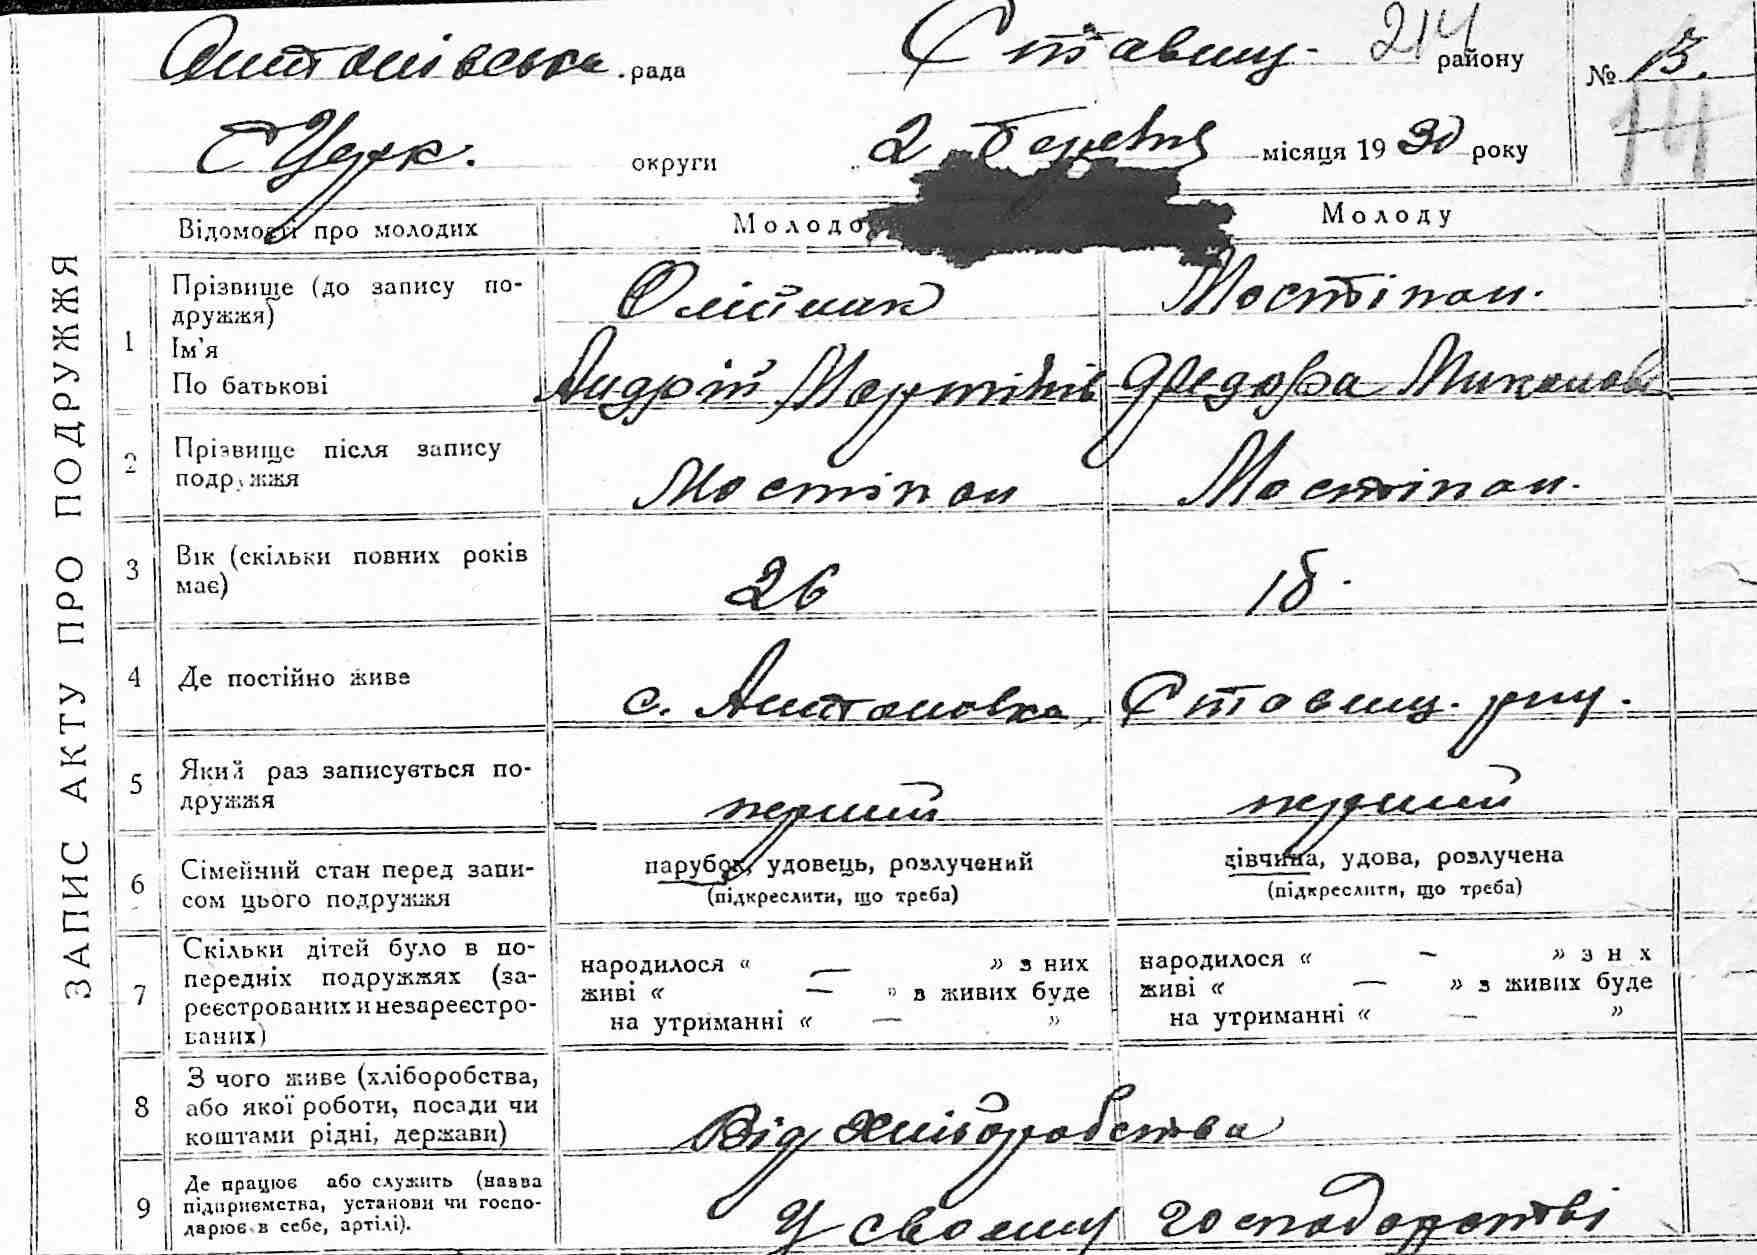 Антонівська рада Ставищ. 214 району № 13.
БЦерк. округи 2 березня місяця 1930 року 14
Відомості про молодих Молодо Молоду
ЗАПИС АКТУ ПРО ПОДРУЖЖЯ
1 Прізвище (до запису по-
дружжя) Олійник Мостіпан.
Ім'я
По батькові Андрій Мартинів Федора Миколаєв
2 Прізвище після запису
подружжя Мостіпан Мостіпан.
3 Вік (скільки повних років
має) 26 18.
4 Де постійно живе с. Антоновка, Ставищ. р-ну.
5 Який раз записується по-
дружжя перший перший
6 Сімейний стан перед запи-
сом цього подружжя парубок, удовець, розлучений дівчина, удова, розлучена
(підкреслити, що треба) (підкреслити, що треба)
7 Скільки дітей було в по-
передніх подружжях (за-
реєстрованих и незареєстро-
ваних)
народилося « — » з них
живі « — » з живих буде
на утриманні « — »
народилося « — » з н х
живі « — » з живих буде
на утриманні « — »
8 З чого живе (хліборобства,
або якої роботи, посади чи
коштами рідні, держави) Від хліборобства
9 Де працює або служить (назва
підприємства, установи чи госпо-
дарює в себе, артілі). У своєму господарстві